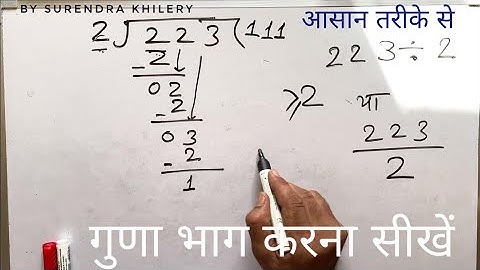 BY SURENDRA KHILERY
आसान तरीके से
2) 223 ( 111
223 ÷ 2
- 2
02
- 2
03
- 2
1
≥2
या
223
2
गुणा भाग करना सीखें